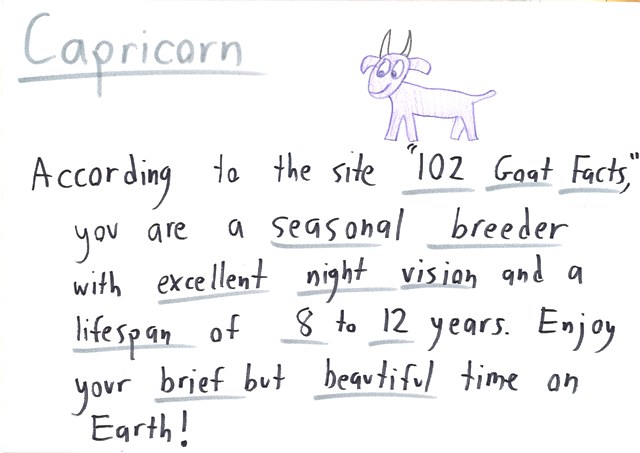 Capricorn
According to the site "102 Goat Facts,"
you are a seasonal breeder
with excellent night vision and a
lifespan of 8 to 12 years. Enjoy
your brief but beautiful time on
Earth!